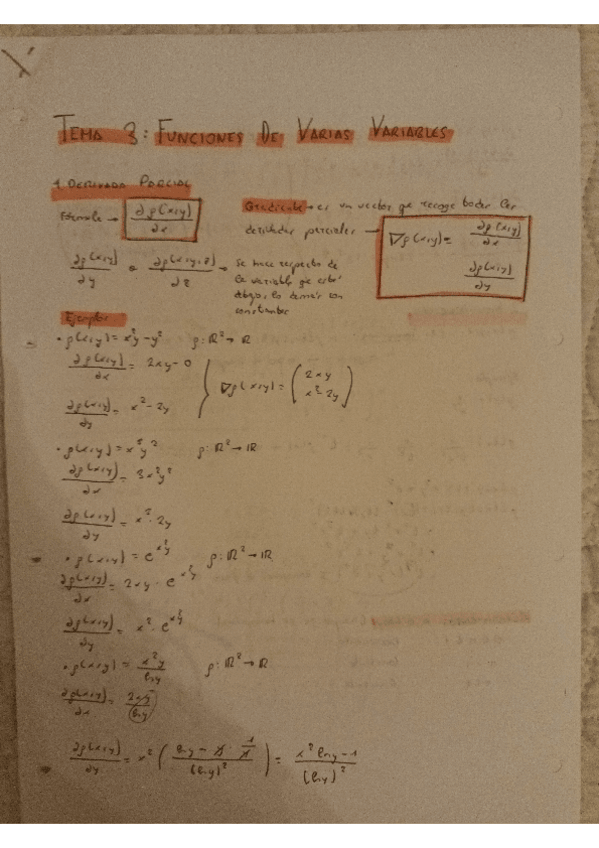 TEMA 3: FUNCIONES DE VARIAS VARIABLES
1. DERIVADA PARCIAL
Fórmula → ∂f(x,y)/∂x
Gradiente → es un vector que recoge todas las
derivadas parciales → ∇f(x,y) = ∂f(x,y)/∂x
∂f(x,y)/∂y
∂f(x,y)/∂y o ∂f(x,y,z)/∂z → Se hace respecto de
la variable que esté
abajo, lo demás son
constantes
Ejemplos
• f(x,y) = x²y - y² f: ℝ² → ℝ
∂f(x,y)/∂x = 2xy - 0
∇f(x,y) = (2xy
x² - 2y)
∂f(x,y)/∂y = x² - 2y
• f(x,y) = x³y² f: ℝ² → ℝ
∂f(x,y)/∂x = 3x²y²
∂f(x,y)/∂y = x³ · 2y
• f(x,y) = e^(x²y) f: ℝ² → ℝ
∂f(x,y)/∂x = 2xy · e^(x²y)
∂f(x,y)/∂y = x² · e^(x²y)
• f(x,y) = x²y/ln y f: ℝ² → ℝ
∂f(x,y)/∂x = 2xy/ln y
∂f(x,y)/∂y = x² (ln y - y · 1/y / (ln y)²) = x² ln y - 1/(ln y)²